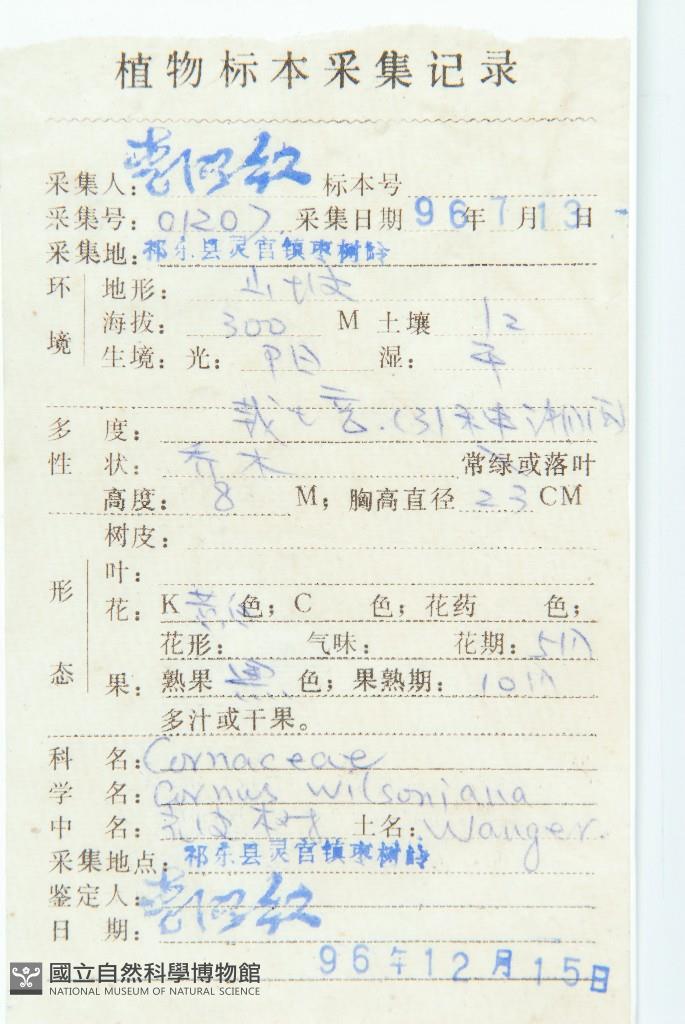 植物标本采集记录
采集人： 标本号
采集号：01207 采集日期 96年7月13日
采集地：祁东县灵官镇枣树岭
环境 地形：山坡
海拔：300 M 土壤
生境：光：阳 湿：干
多度：
性状：乔木 常绿或落叶
高度：8 M；胸高直径 23 CM
形态 树皮：
叶：
花：K 色；C 色；花药 色；
花形： 气味： 花期：5月
果：熟果 黑 色；果熟期：10月
多汁或干果。
科名：Cornaceae
学名：Cornus wilsoniana
中名：光皮树 土名：Wanger.
采集地点：祁东县灵官镇枣树岭
鉴定人：
日期：
96年12月15日
國立自然科學博物館
NATIONAL MUSEUM OF NATURAL SCIENCE